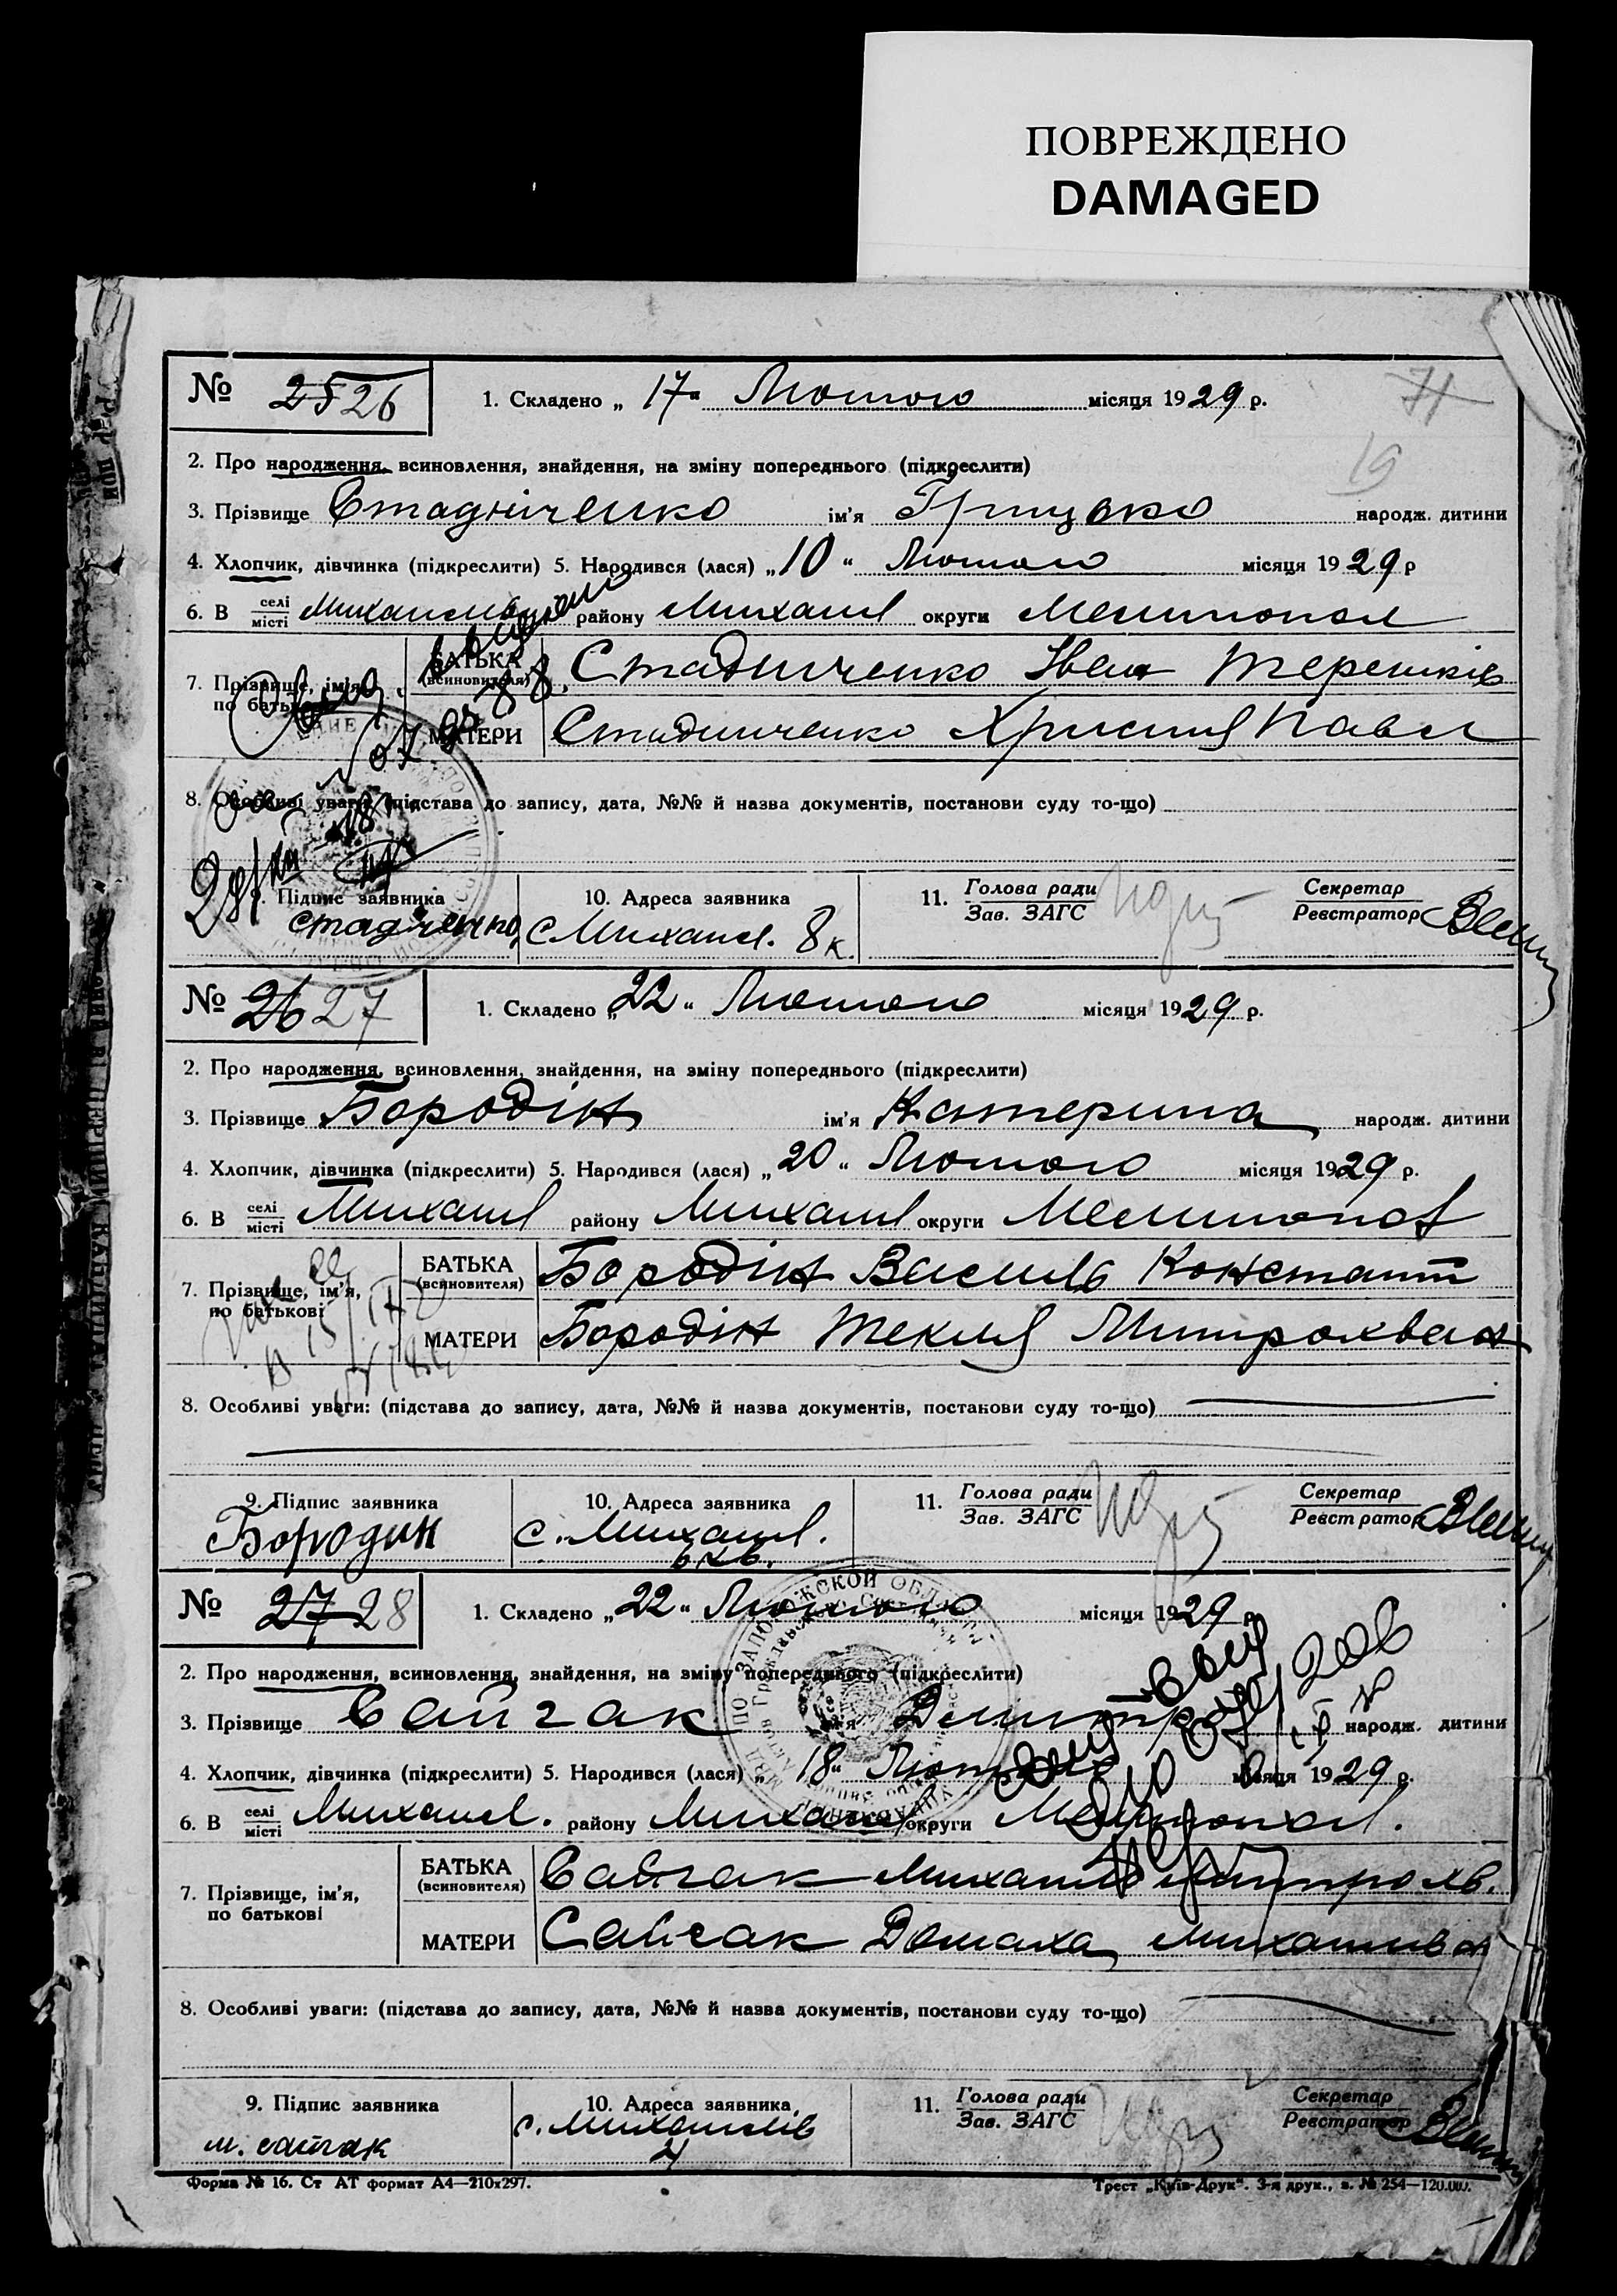 ПОВРЕЖДЕНО
DAMAGED
71
19
№ 25 26
1. Складено „ 17 “ Лютого місяця 1929 р.
2. Про народження, всиновлення, знайдення, на зміну попереднього (підкреслити)
3. Прізвище Стадніченко ім’я Грицько народж. дитини
4. Хлопчик, дівчинка (підкреслити) 5. Народився (лася) „ 10 “ Лютого місяця 1929 р
6. В селі місті Михайлівці району Михайл округи Мелитопол
7. Прізвище, ім’я, по батькові
БАТЬКА (всиновителя) Стадниченко Іван Терешків
МАТЕРИ Стадниченко Христия Павл
8. Особливі уваги: (підстава до запису, дата, №№ й назва документів, постанови суду то-що)
9. Підпис заявника
10. Адреса заявника с Михайл. 8 к.
11. Голова ради Зав. ЗАГС
Секретар Реєстратор
№ 26 27
1. Складено „ 22 “ Лютого місяця 1929 р.
2. Про народження, всиновлення, знайдення, на зміну попереднього (підкреслити)
3. Прізвище Бородін ім’я Катерина народж. дитини
4. Хлопчик, дівчинка (підкреслити) 5. Народився (лася) „ 20 “ Лютого місяця 1929 р.
6. В селі місті Михайл району Михайл округи Мелитопол
7. Прізвище, ім’я, по батькові
БАТЬКА (всиновителя) Бородін Василь Констант
МАТЕРИ Бородін Текля Митрохван
8. Особливі уваги: (підстава до запису, дата, №№ й назва документів, постанови суду то-що)
9. Підпис заявника Бородин
10. Адреса заявника с. Михайл. 6 кв.
11. Голова ради Зав. ЗАГС
Секретар Реєстратор
№ 27 28
1. Складено „ 22 “ Лютого місяця 1929 р.
2. Про народження, всиновлення, знайдення, на зміну попереднього (підкреслити)
3. Прізвище Сайгак ім’я Дмитро народж. дитини
4. Хлопчик, дівчинка (підкреслити) 5. Народився (лася) „ 18 “ Лютого місяця 1929 р.
6. В селі місті Михайл. району Михайл округи Мелитопол.
7. Прізвище, ім’я, по батькові
БАТЬКА (всиновителя) Сайгак Михайло Митрохв.
МАТЕРИ Сайгак Домаха Михайлів
8. Особливі уваги: (підстава до запису, дата, №№ й назва документів, постанови суду то-що)
9. Підпис заявника м. сайгак
10. Адреса заявника с. Михайлів 4
11. Голова ради Зав. ЗАГС
Секретар Реєстратор
Форма № 16. Ст АТ формат А4—210х297.
Трест „Київ-Друк“. 3-я друк., з. № 254—120.000.